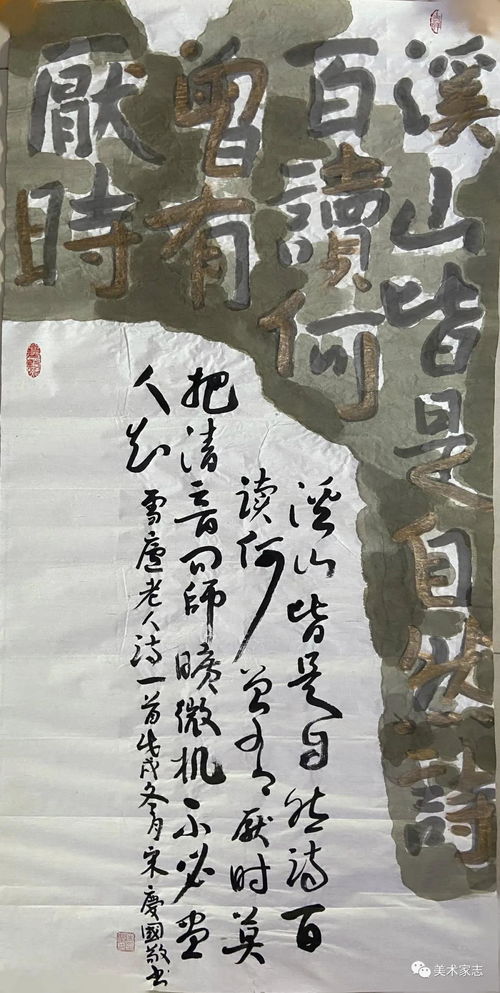 溪山皆是自然詩
百讀何
曾有
厭時
溪山皆是自然诗百
读何曾有厭时莫
把清音问師曠微机不必尽
人知
雪廬老人诗一首戊戌冬月宋慶國敬书
美术家志